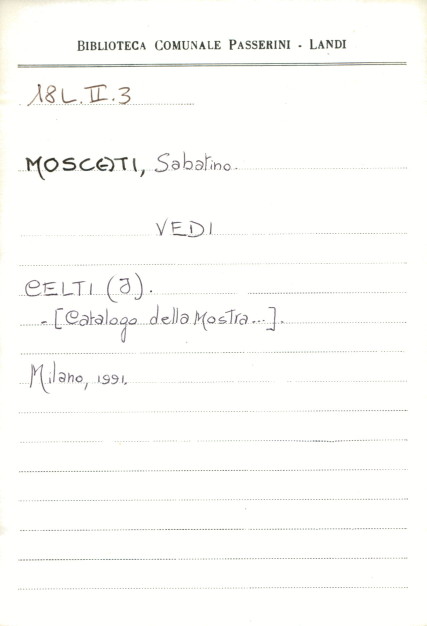 BIBLIOTECA COMUNALE PASSERINI - LANDI
18L.II.3
MOSCATI, Sabatino.
VEDI
CELTI (I).
- [Catalogo della Mostra...].
Milano, 1991.